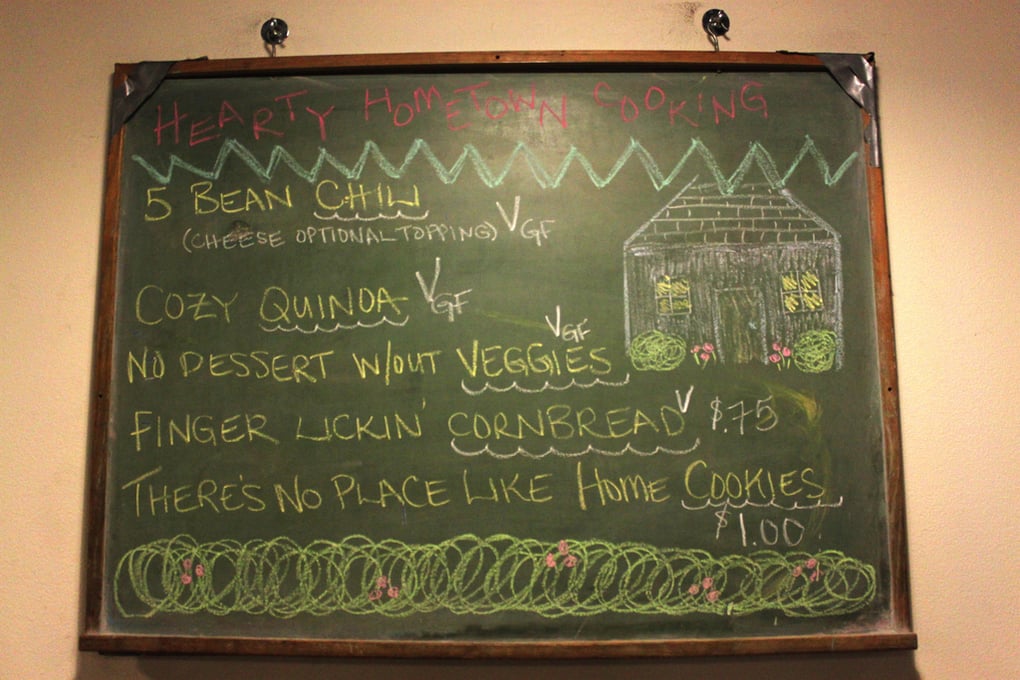 HEARTY HOMETOWN COOKING
5 BEAN CHILI
(CHEESE OPTIONAL TOPPING) V GF
COZY QUINOA V GF
NO DESSERT W/OUT VEGGIES V GF
FINGER LICKIN' CORNBREAD V $.75
THERE'S NO PLACE LIKE HOME COOKIES
$1.00